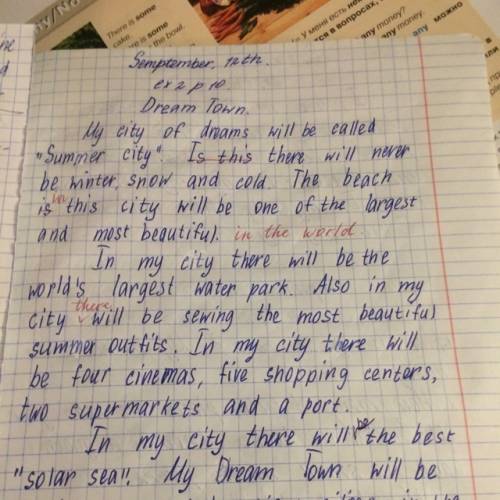 There is some
cake.
in the bowl.
У меня есть
в вопросах,
any money?
any money?
можно
Semptember, 12th.
ex 2 p 10.
Dream Town.
My city of dreams will be called
"Summer city". Is this there will never
be winter, snow and cold. The beach
is in this city will be one of the largest
and most beautiful. in the world
In my city there will be the
world's largest water park. Also in my
city there will be sewing the most beautiful
summer outfits. In my city there will
be four cinemas, five shopping centers,
two supermarkets and a port.
In my city there will be the best
"solar sea". My Dream Town will be